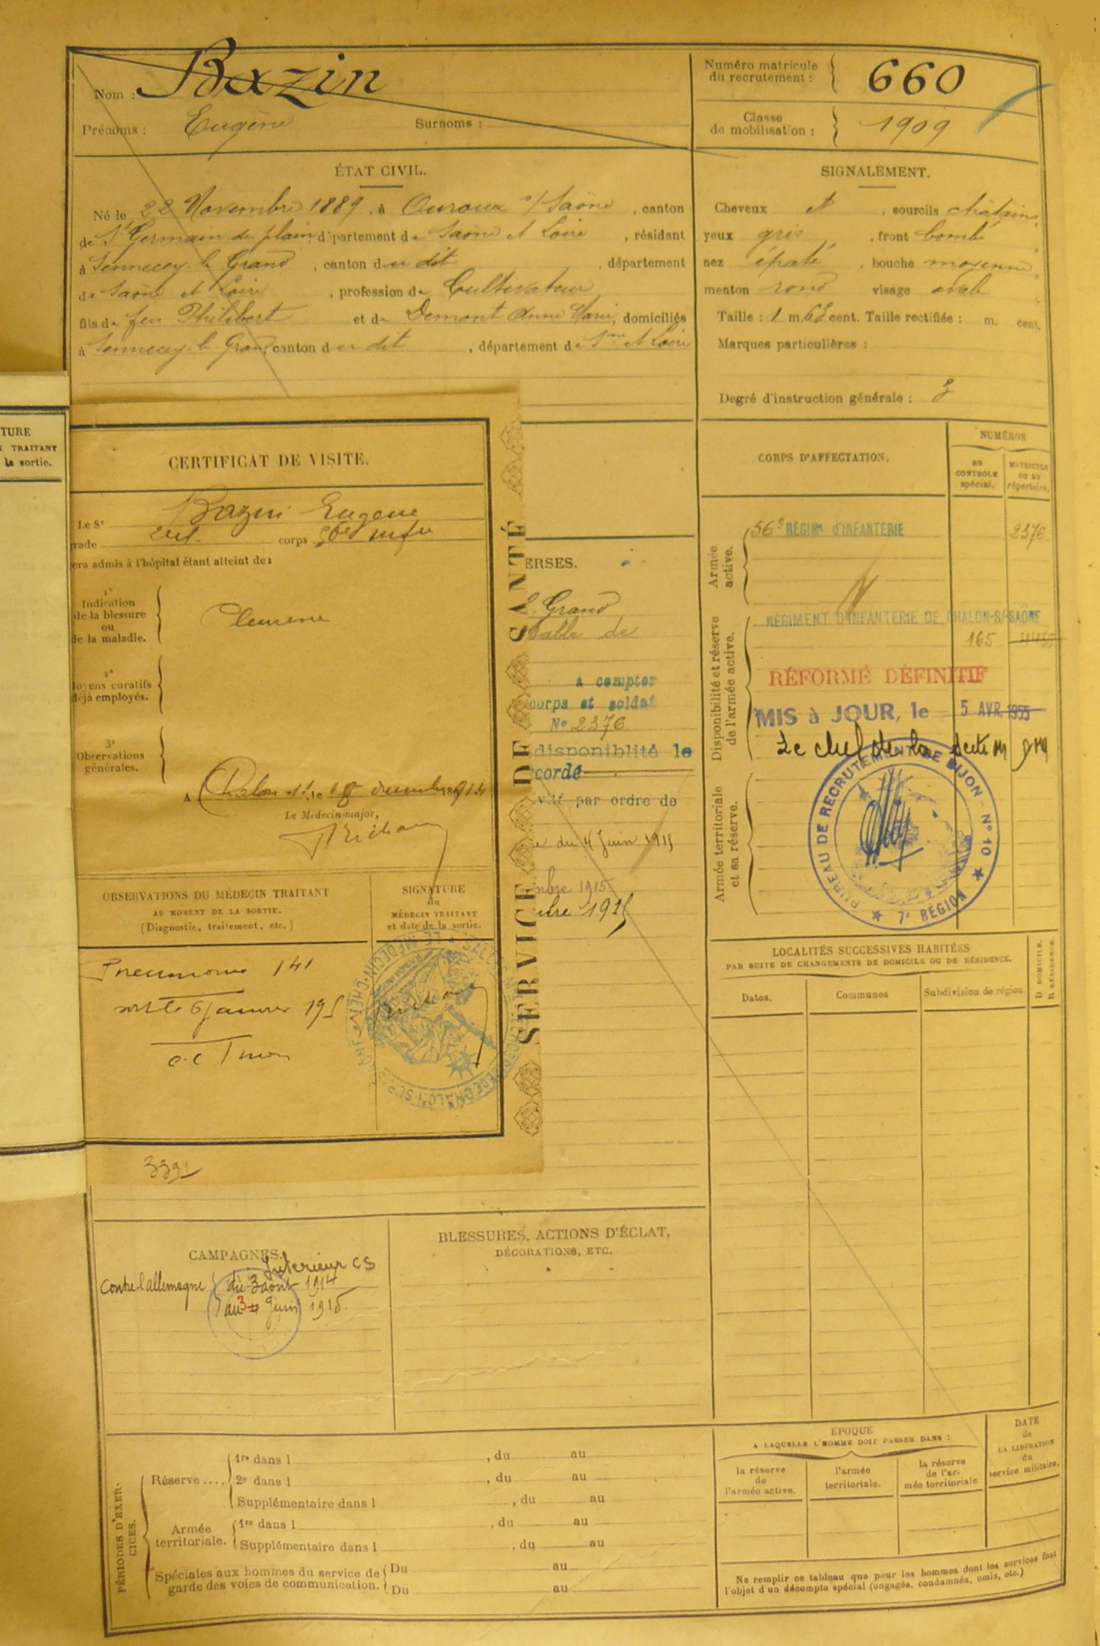 Nom : Bazin
Prénoms : Eugène Surnoms :
Numéro matricule du recrutement : 660
Classe de mobilisation : 1909
ÉTAT CIVIL.
Né le 22 Novembre 1889, à Ouroux s/Saône, canton
de St Germain du plain département de Saône et Loire, résidant
à Sennecey le Grand, canton du dit, département
de Saône et Loire, profession de Cultivateur
fils de feu Philibert et de Demont Anne Marie, domiciliés
à Sennecey le Grand canton du dit, département de S.ne et Loire
SIGNALEMENT.
Cheveux et, sourcils châtains,
yeux gris, front bombé
nez épaté, bouche moyenne,
menton rond visage ovale
Taille : 1 m. 68 cent. Taille rectifiée : m. cent.
Marques particulières :
Degré d'instruction générale : 3
TURE
TRAITANT
la sortie.
CERTIFICAT DE VISITE.
Le Sr Bazin Eugène
rade corps 56e
era admis à l'hôpital étant atteint de :
1°
Indication
de la blessure
ou
de la maladie.
2°
oyens curatifs
déjà employés.
3°
Observations
générales.
A Chalon
Le Médecin-major,
OBSERVATIONS DU MÉDECIN TRAITANT
AU MOMENT DE LA SORTIE.
(Diagnostic, traitement, etc.)
SIGNATURE
du
MÉDECIN TRAITANT
et date de la sortie.
Pneumonie 141
SERVICE DE SANTÉ
3391
ERSES.
Grand
a compter
corps et soldat
No 2376
disponiblité le
cordé
par ordre de
du 4 Juin 1915
mbre 1915
CORPS D'AFFECTATION.
NUMÉROS
AU CONTROLE spécial.
MATRICULE OU AU répertoire.
Armée active.
56e RÉGIMt D'INFANTERIE 2376
Disponibilité et réserve de l'armée active.
RÉGIMENT D'INFANTERIE DE CHALON-S/-SAONE
165
RÉFORMÉ DÉFINITIF
MIS à JOUR, le 5 AVR 1955
Le chef de la
Armée territoriale et sa réserve.
BUREAU DE RECRUTEMENT DE DIJON - N° 10
7e RÉGION
LOCALITÉS SUCCESSIVES HABITÉES
PAR SUITE DE CHANGEMENTS DE DOMICILE OU DE RÉSIDENCE.
D DOMICILE.
R RÉSIDENCE.
Dates. Communes Subdivision de région
CAMPAGNES.
Intérieur CS
Contre l'allemagne du 3 août 1914
au 3 Juin 1915
BLESSURES, ACTIONS D'ÉCLAT,
DÉCORATIONS, ETC.
PÉRIODES D'EXERCICES.
Réserve ....
1re dans l , du au
2e dans l , du au
Supplémentaire dans l , du au
Armée territoriale.
1re dans l , du au
Supplémentaire dans l , du au
Spéciales aux hommes du service de garde des voies de communication.
Du au
Du au
ÉPOQUE
A LAQUELLE L'HOMME DOIT PASSER DANS :
la réserve de l'armée active.
l'armée territoriale.
la réserve de l'armée territoriale
DATE de LA LIBÉRATION du service militaire.
Ne remplir ce tableau que pour les hommes dont les services font
l'objet d'un décompte spécial (engagés, condamnés, omis, etc.)